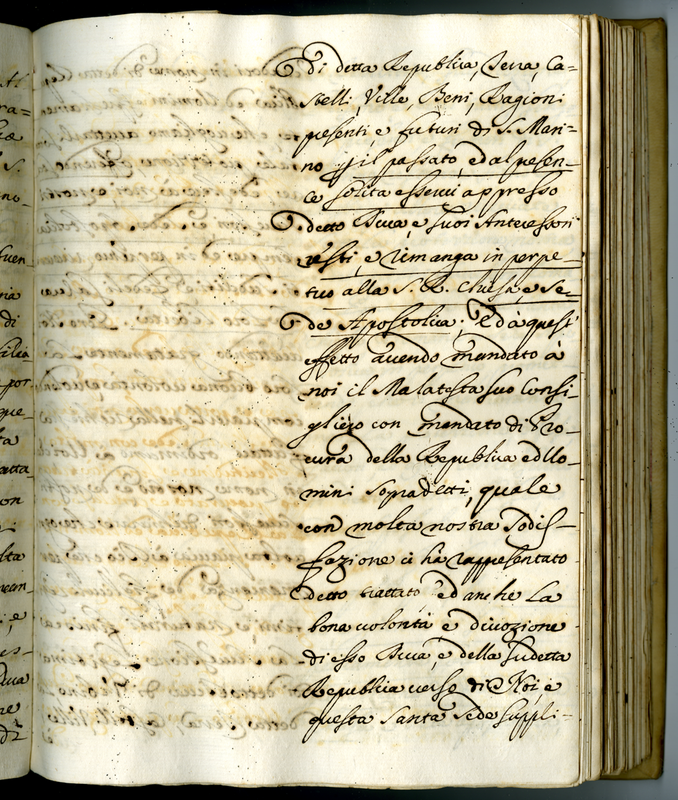 di detta Republica, Terra, Ca=
stelli, Ville, Beni, Ragioni
presenti, e futuri di S. Mari=
no p il passato, ed al presen_
te solita essere appresso
detto Duca, e suoi Antecessori
resti, e rimanga in perpe_
tuo alla S. R. Chiesa, e Se_
de Apostolica; Ed à quest'
effetto avendo mandato à
noi il Malatesta suo Consi_
gliero con mandato di Pro_
cura della Republica ed Uo_
mini sopradetti, quale
con molta nostra sodis_
fazione ci hà rappresentato
detto trattato ed anche la
bona volontà e divozione
di esso Duca, e della sudetta
Republica verso di Noi, e
questa Santa Sede suppli_